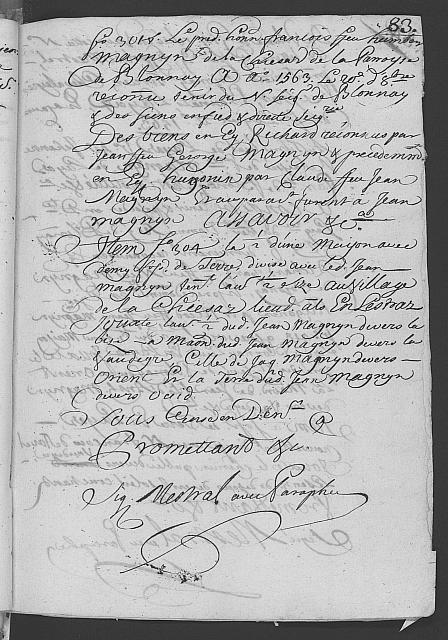 83.
fo 304. Le pred. honn. françois feu humbert
Magnyn de la Chiesaz de la Parroisse
de Blonnay A Ao 1563. Le 20e
reconnu tenir du N. Seig. de Blonnay
& des siens en fied & directe Seig.rie
Des biens en Eg. Richard reconnus par
Jean feu George Magnyn & precedemm.
en Eg. hugonin par Claude feu Jean
Magnyn & auparavant furent à Jean
magnyn Assavoir &c.a
Item fo 304 la ½ dune Maison avec
demy de Terre divise avec led. Jean
magnyn ten. lau. ½ au Village
de la Chiesaz lieud. ato En
Jouxte lau. ½ dud. Jean Magnyn devers la
bise la Maon. dud. Jean Magnyn devers la
vaudeyre Celle de Jaq. Magnyn devers
Orient Et la Terre dud. Jean Magnyn
devers Occid.
Sous Cense en Den.
Promettant &c.
Sig. Mestral avec Paraphe